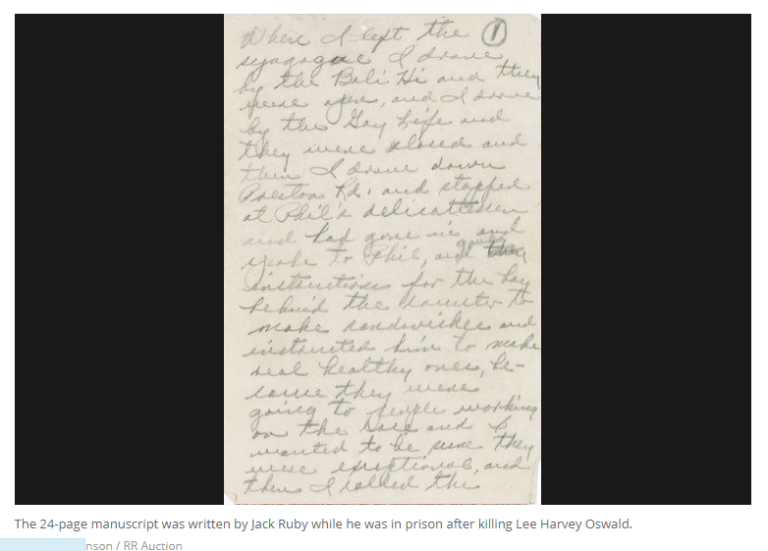 When I left the 1
synagogue I drove
by the Bali Hi and they
were open, and I drove
by the Gay Life and
they were closed and
then I drove down
Preston Rd. and stopped
at Phil's delicatessen
and had gone in and
spoke to Phil, and gave
instructions for the boy
behind the counter to
make sandwiches and
instructed him to make
real healthy ones, be-
cause they were
going to people working
on the case and I
wanted to be sure they
were exceptional, and
then I called the
The 24-page manuscript was written by Jack Ruby while he was in prison after killing Lee Harvey Oswald.
nson / RR Auction